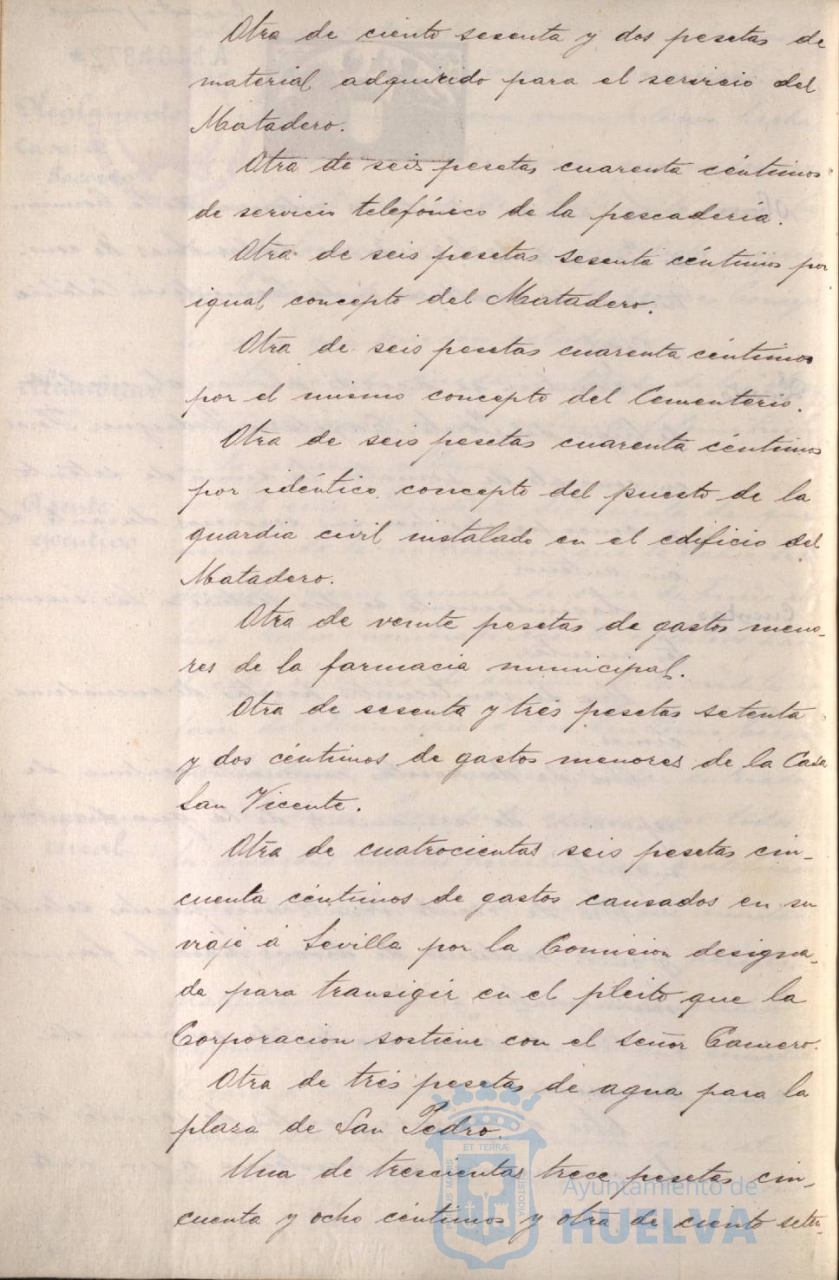 Otra de ciento sesenta y dos pesetas de
material adquirido para el servicio del
Matadero.
Otra de seis pesetas cuarenta céntimos
de servicio telefónico de la pescadería.
Otra de seis pesetas sesenta céntimos por
igual concepto del Matadero.
Otra de seis pesetas cuarenta céntimos
por el mismo concepto del Cementerio.
Otra de seis pesetas cuarenta céntimos
por idéntico concepto del puesto de la
guardia civil instalado en el edificio del
Matadero.
Otra de veinte pesetas de gastos meno-
res de la farmacia municipal.
Otra de sesenta y tres pesetas setenta
y dos céntimos de gastos menores de la Casa
San Vicente.
Otra de cuatrocientas seis pesetas cin-
cuenta céntimos de gastos causados en su
viaje á Sevilla por la Comision designa-
da para transigir en el pleito que la
Corporacion sostiene con el Señor
Otra de tres pesetas de agua para la
plaza de San Pedro.
Una de trescientas trece pesetas cin-
cuenta y ocho céntimos y otra de ciento seten-
ET TERRÆ
CUSTODIA
Ayuntamiento de
HUELVA